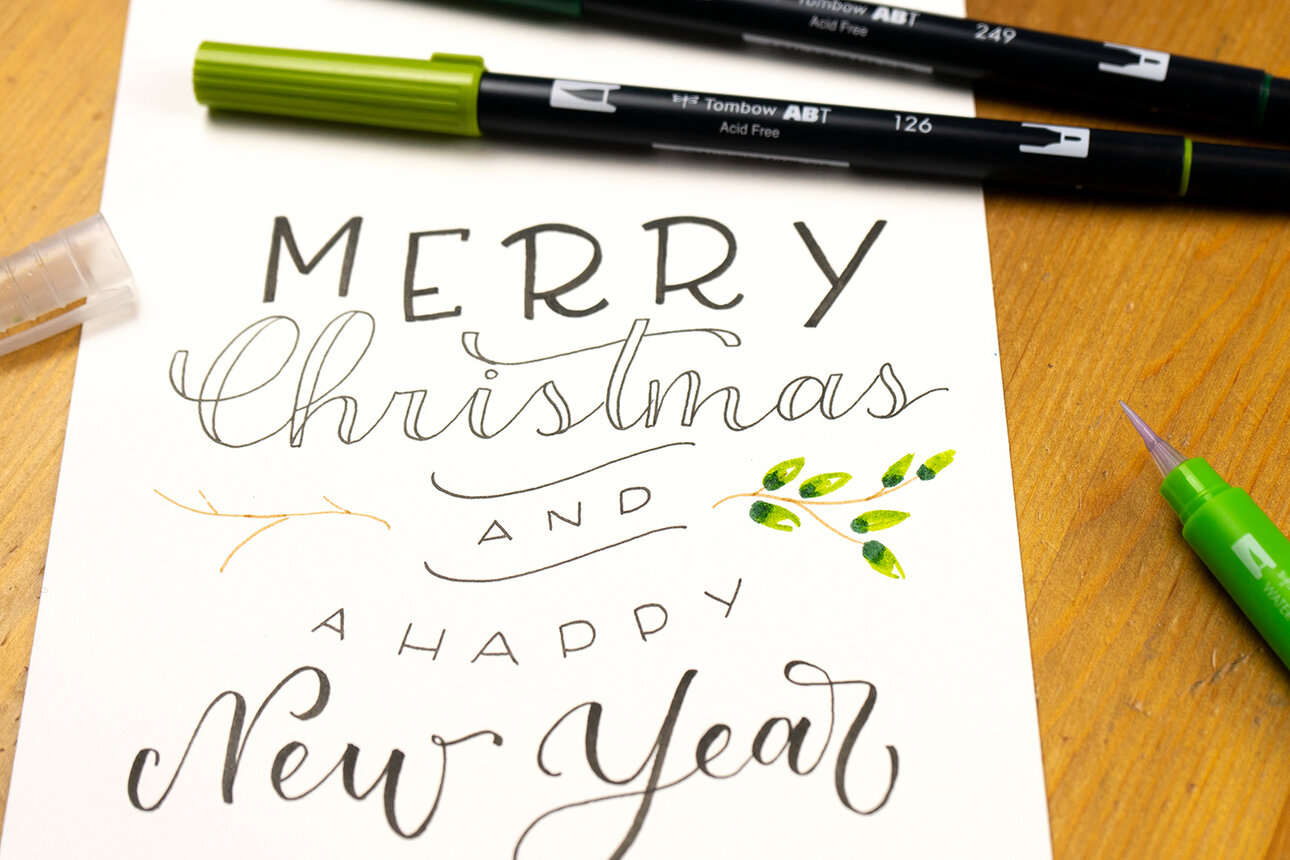 Tombow ABT
Acid Free
249
Tombow ABT
Acid Free
126
MERRY
Christmas
AND
A HAPPY
New Year